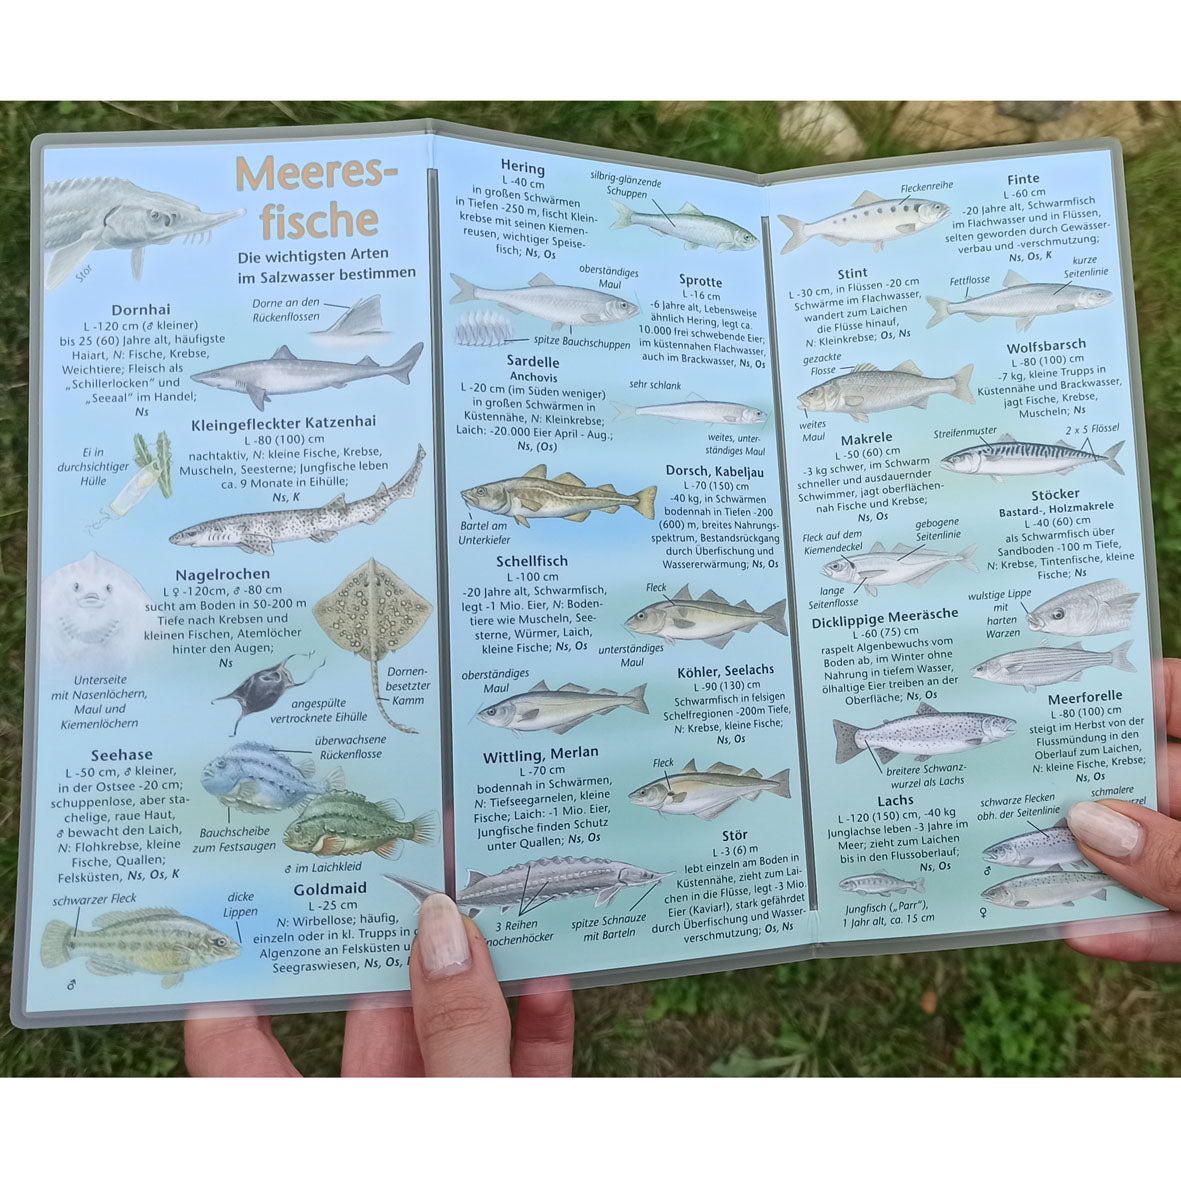 Meeres-
fische
Die wichtigsten Arten
im Salzwasser bestimmen
Stör
Dornhai
L -120 cm (♂ kleiner)
bis 25 (60) Jahre alt, häufigste
Haiart, N: Fische, Krebse,
Weichtiere; Fleisch als
„Schillerlocken“ und
„Seeaal“ im Handel;
Ns
Dorne an den
Rückenflossen
Kleingefleckter Katzenhai
L -80 (100) cm
nachtaktiv, N: kleine Fische, Krebse,
Muscheln, Seesterne; Jungfische leben
ca. 9 Monate in Eihülle;
Ns, K
Ei in
durchsichtiger
Hülle
Nagelrochen
L ♀ -120cm, ♂ -80 cm
sucht am Boden in 50-200 m
Tiefe nach Krebsen und
kleinen Fischen, Atemlöcher
hinter den Augen;
Ns
Unterseite
mit Nasenlöchern,
Maul und
Kiemenlöchern
angespülte
vertrocknete Eihülle
Dornen-
besetzter
Kamm
Seehase
L -50 cm, ♂ kleiner,
in der Ostsee -20 cm;
schuppenlose, aber sta-
chelige, raue Haut,
♂ bewacht den Laich,
N: Flohkrebse, kleine
Fische, Quallen;
Felsküsten, Ns, Os, K
überwachsene
Rückenflosse
Bauchscheibe
zum Festsaugen
♂ im Laichkleid
Goldmaid
L -25 cm
N: Wirbellose; häufig,
einzeln oder in kl. Trupps in
Algenzone an Felsküsten
Seegraswiesen, Ns, Os,
schwarzer Fleck
dicke
Lippen
♂
Hering
L -40 cm
in großen Schwärmen
in Tiefen -250 m, fischt Klein-
krebse mit seinen Kiemen-
reusen, wichtiger Speise-
fisch; Ns, Os
silbrig-glänzende
Schuppen
Sprotte
L -16 cm
-6 Jahre alt, Lebensweise
ähnlich Hering, legt ca.
10.000 frei schwebende Eier;
im küstennahen Flachwasser,
auch im Brackwasser, Ns, Os
oberständiges
Maul
spitze Bauchschuppen
Sardelle
Anchovis
L -20 cm (im Süden weniger)
in großen Schwärmen in
Küstennähe, N: Kleinkrebse;
Laich: -20.000 Eier April - Aug.;
Ns, (Os)
sehr schlank
weites, unter-
ständiges Maul
Dorsch, Kabeljau
L -70 (150) cm
-40 kg, in Schwärmen
bodennah in Tiefen -200
(600) m, breites Nahrungs-
spektrum, Bestandsrückgang
durch Überfischung und
Wassererwärmung; Ns, Os
Bartel am
Unterkiefer
Schellfisch
L -100 cm
-20 Jahre alt, Schwarmfisch,
legt -1 Mio. Eier, N: Boden-
tiere wie Muscheln, See-
sterne, Würmer, Laich,
kleine Fische; Ns, Os
Fleck
unterständiges
Maul
Köhler, Seelachs
L -90 (130) cm
Schwarmfisch in felsigen
Schelfregionen -200m Tiefe,
N: Krebse, kleine Fische;
Ns, Os
oberständiges
Maul
Wittling, Merlan
L -70 cm
bodennah in Schwärmen,
N: Tiefseegarnelen, kleine
Fische; Laich: -1 Mio. Eier,
Jungfische finden Schutz
unter Quallen; Ns, Os
Fleck
Stör
L -3 (6) m
lebt einzeln am Boden in
Küstennähe, zieht zum Lai-
chen in die Flüsse, legt -3 Mio.
Eier (Kaviar!), stark gefährdet
durch Überfischung und Wasser-
verschmutzung; Os, Ns
3 Reihen
nochenhöcker
spitze Schnauze
mit Barteln
Finte
L -60 cm
-20 Jahre alt, Schwarmfisch
im Flachwasser und in Flüssen,
selten geworden durch Gewässer-
verbau und -verschmutzung;
Ns, Os, K
Fleckenreihe
Stint
L -30 cm, in Flüssen -20 cm
Schwärme im Flachwasser,
wandert zum Laichen
die Flüsse hinauf,
N: Kleinkrebse; Os, Ns
Fettflosse
kurze
Seitenlinie
Wolfsbarsch
L -80 (100) cm
-7 kg, kleine Trupps in
Küstennähe und Brackwasser,
jagt Fische, Krebse,
Muscheln; Ns
gezackte
Flosse
weites
Maul
Makrele
L -50 (60) cm
-3 kg schwer, im Schwarm
schneller und ausdauernder
Schwimmer, jagt oberflächen-
nah Fische und Krebse;
Ns, Os
Streifenmuster
2 x 5 Flössel
Stöcker
Bastard-, Holzmakrele
L -40 (60) cm
als Schwarmfisch über
Sandboden -100 m Tiefe,
N: Krebse, Tintenfische, kleine
Fische; Ns
Fleck auf dem
Kiemendeckel
gebogene
Seitenlinie
lange
Seitenflosse
Dicklippige Meeräsche
L -60 (75) cm
raspelt Algenbewuchs vom
Boden ab, im Winter ohne
Nahrung in tiefem Wasser,
ölhaltige Eier treiben an der
Oberfläche; Ns, Os
wulstige Lippe
mit
harten
Warzen
Meerforelle
L -80 (100) cm
steigt im Herbst von der
Flussmündung in den
Oberlauf zum Laichen,
N: kleine Fische, Krebse;
Ns, Os
breitere Schwanz-
wurzel als Lachs
Lachs
L -120 (150) cm, -40 kg
Junglachse leben -3 Jahre im
Meer; zieht zum Laichen
bis in den Flussoberlauf;
Ns, Os
schwarze Flecken
obh. der Seitenlinie
schmalere
♂
♀
Jungfisch („Parr“),
1 Jahr alt, ca. 15 cm